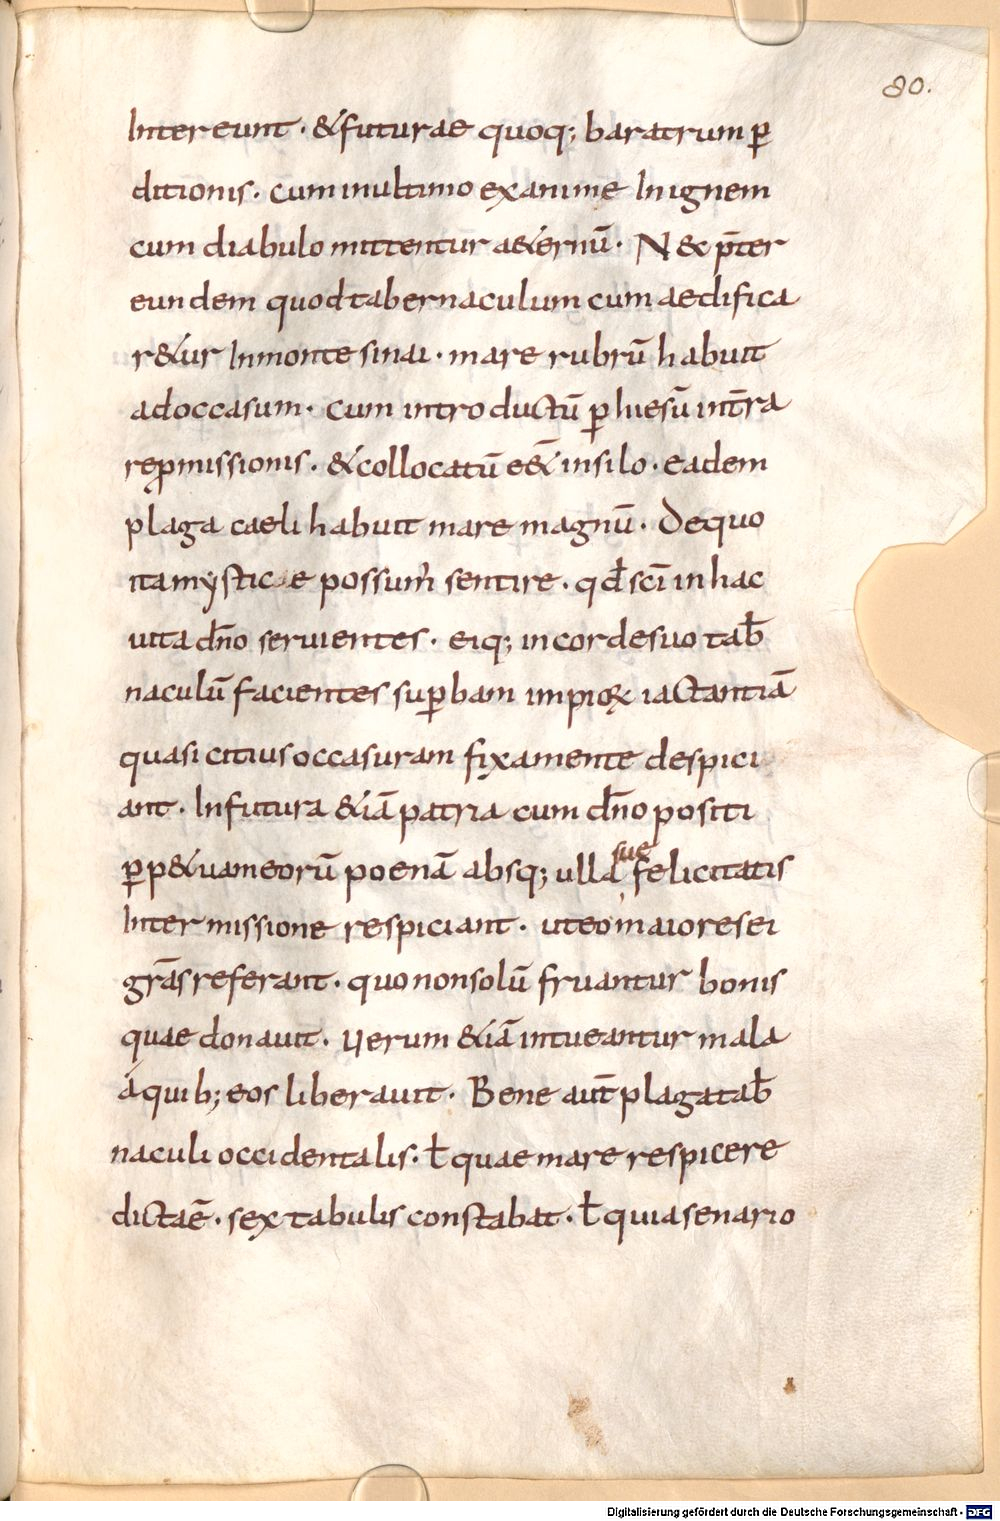 80.
Inter eunt · & futurae quoq; baratrum ꝑ
ditionis · cum inultimo exanime In ignem
cum diabulo mittentur a&ernū · N & p̄ter
eundem quod tabernaculum cum aedifica
r&ur In monte sinai · mare rubrū habuit
ad occasum · cum introductū ꝑ hiesū in t̄ra
reꝓmissionis · & collocatū e&̄ in silo · eadem
plaga caeli habuit mare magnū · De quo
ita mysticae possum̉ sentire · qđ sc̄i in hac
uita dn̄o seruientes · eiq; in corde suo tab̄
naculū facientes suꝑbam impioꝝ iactantiā
quasi citius occasuram fixa mente despici
ant · In futura &iā patria cum dn̄o positi
ꝑp&uam eorū poenā absq; ulla sue felicitatis
Inter missione respiciant · ut eo maiores ei
grās referant · quo non solū fruantur bonis
quae donauit · Uerum &iā intueantur mala
á quib; eos liberauit · Bene aut̄ plaga tab̄
naculi occidentalis · ł quae mare respicere
dicta ē · sex tabulis constabat · ł quia senario
Digitalisierung gefördert durch die Deutsche Forschungsgemeinschaft - DFG